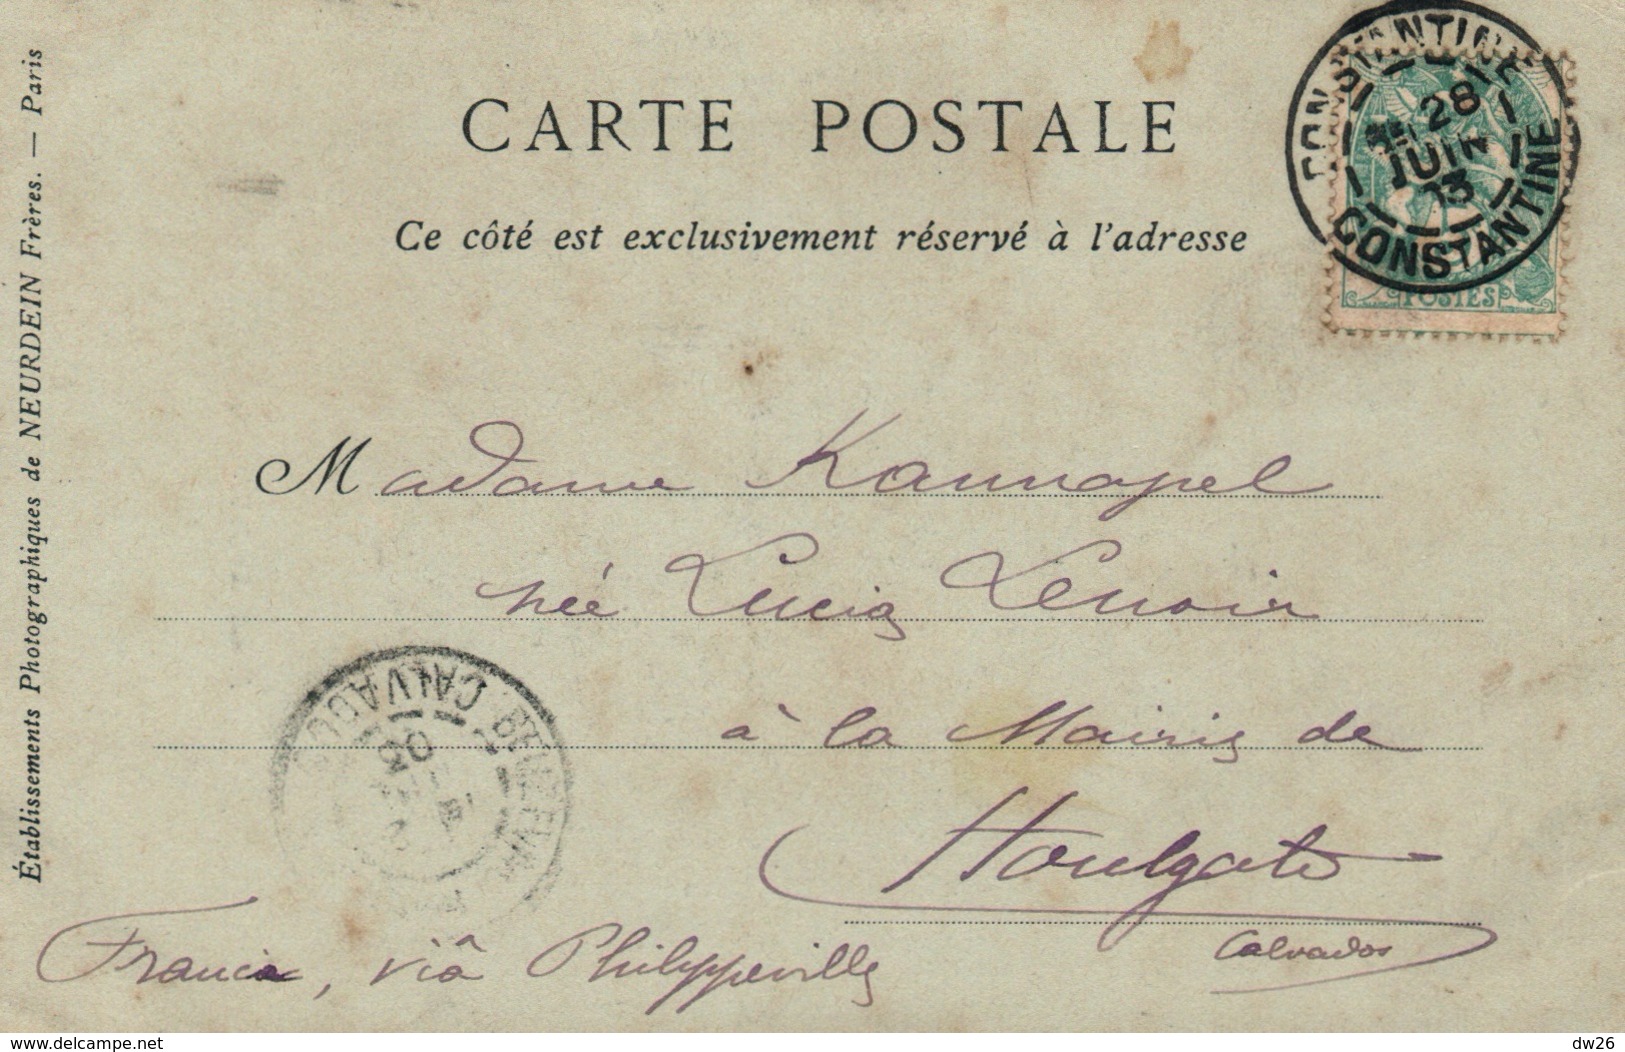 CARTE POSTALE
Ce côté est exclusivement réservé à l'adresse
Établissements Photographiques de NEURDEIN Frères. — Paris
CONSTANTINE
28
JUIN
03
CONSTANTINE
POSTES
Madame Kannapel
née Lucie Lenoir
à la Mairie de
Houlgate
Calvados
France, viâ Philippeville
CALVADOS
03
www.delcampe.net
dw26